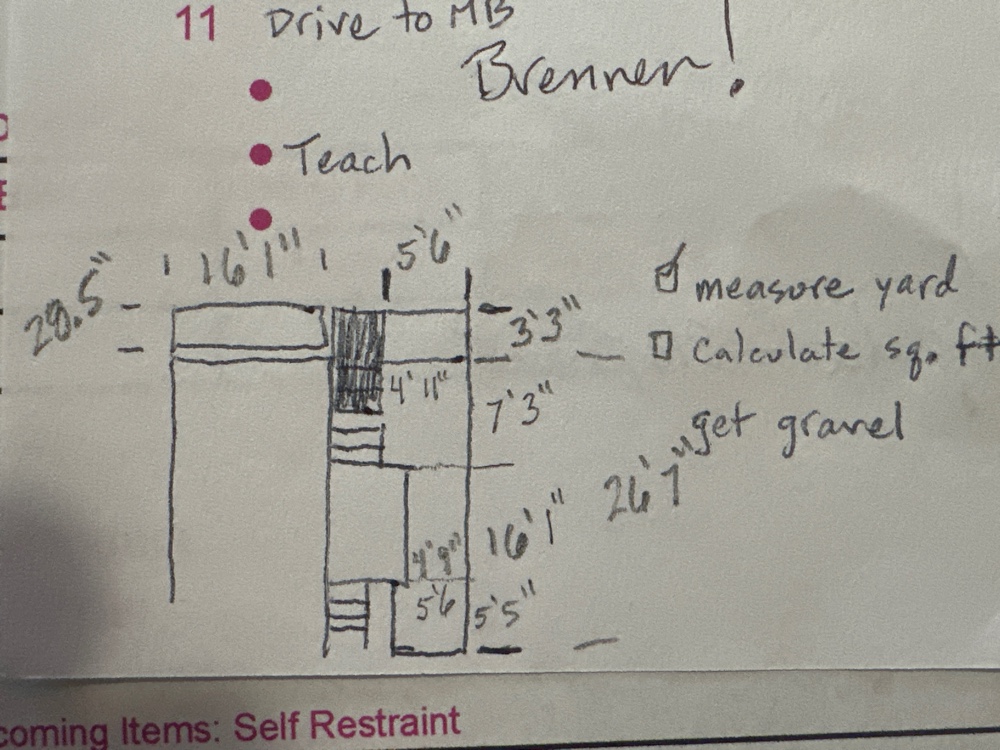 11 Drive to MB
Brennen!
Teach
16'1"
5'6"
20.5"
3'3"
measure yard
calculate sq. ft
4'11"
7'3"
get gravel
26'7"
16'1"
4'9"
5'6
5'5"
coming Items: Self Restraint